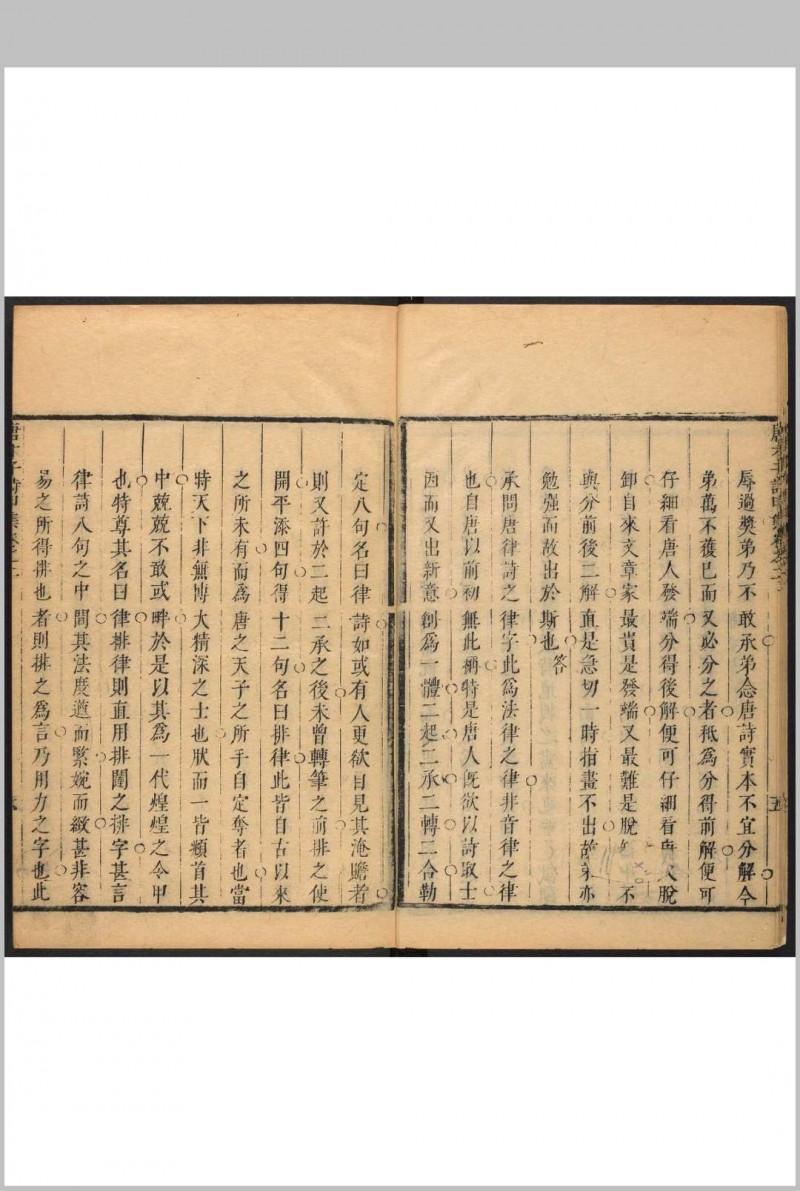 辱過獎弟乃不敢承弟念唐詩實本不宜分解今
弟萬不獲已而又必分之者秪為分得前解便可
仔細看唐人發端分得後解便可仔細看唐人脫
卸自來文章家最貴是發端又最難是脫 不
與分前後二解直是急切一時指畫不出故弟亦
勉強而故出於斯也答
承問唐律詩之律字此為法律之律非音律之律
也自唐以前初無此稱特是唐人既欲以詩取士
因而又出新意創為一體二起二承二轉二合勒
定八句名曰律詩如或有人更欲自見其淹贍者
則又許於二起二承之後未曾轉筆之前排之使
開平添四句得十二句名曰排律此皆自古以來
之所未有而為唐之天子之所手自定奪者也當
特天下非無博大精深之士也狀而一皆頫首其
中兢兢不敢或畔於是以其為一代煌煌之令甲
也特尊其名曰律排律則直用排闥之排字甚言
律詩八句之中間其法度遒而緊婉而緻甚非容
易之所得排也者則排之為言乃用力之字也此
唐才子詩甲集卷之二
五